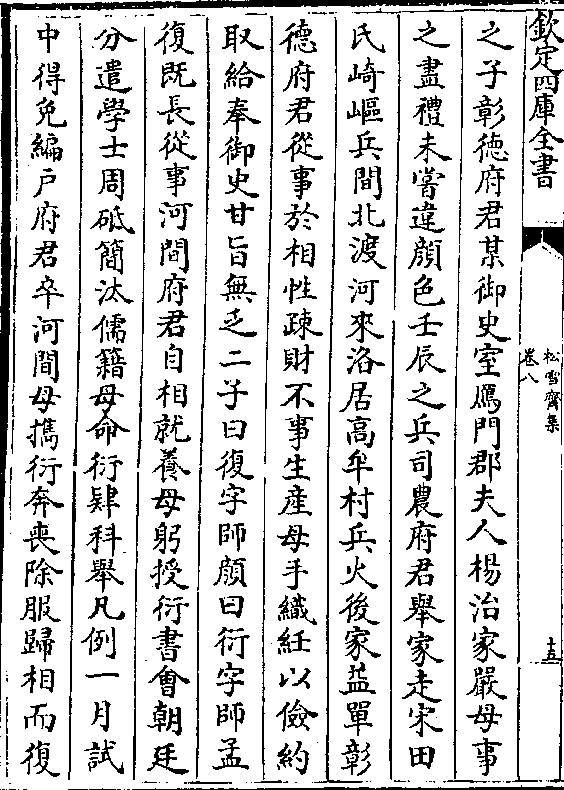 欽定四庫全書
松雪齋集
卷八
十五
之子彰徳府君某御史室鴈門郡夫人楊治家嚴母事
之盡禮未嘗違顔色壬辰之兵司農府君舉家走宋田
氏崎嶇兵間北渡河來洛居高牟村兵火後家益單彰
德府君從事於相性疎財不事生産母手織紝以儉約
取給奉御史甘旨無乏二子曰復字師顔曰衍字師孟
復既長從事河間府君自相就養母躬授衍書會朝廷
分遣學士周砥簡汰儒籍母命衍肄科舉凡例一月試
中得免編戸府君卒河間母攜衍奔喪除服歸相而復